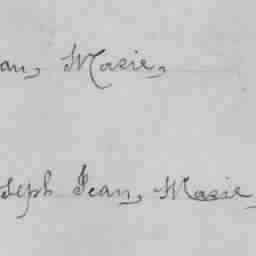 an, Marie,
oseph Jean, Marie,